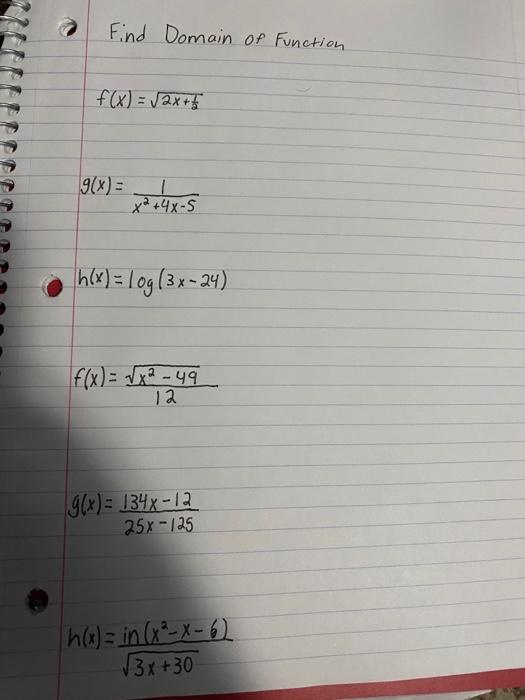 Find Domain of Function
f(x) = √2x+½
g(x) = 1
x² +4x-5
h(x) = log(3x-24)
f(x) = √x² - 49
12
g(x) = 134x-12
25x-125
h(x) = in(x²-x-6)
√3x+30